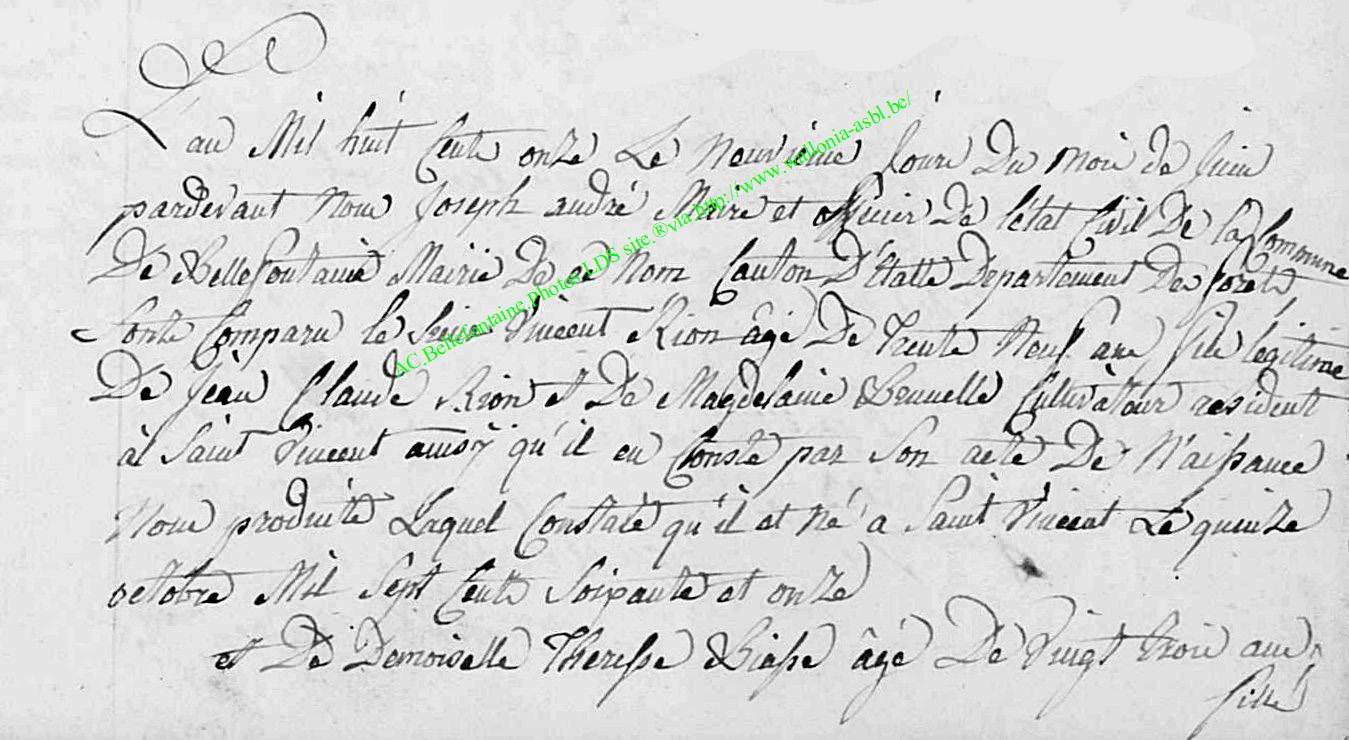 L'an Mil huit Cents onze Le Neuvieme Jours Du Mois de Juin
pardevant Nous Joseph andré Maire et officier De L'état Civil De la Commune
De Bellefontaine Mairie De ce Nom Canton D'Etalle Departement Des forets
Sont Comparu le Sieur Vincent Rion âgé De Trente Neuf ans fils légitime
De Jean Claude Rion et De Magdelaine Brunelle Cultivateur resident
à Saint Vincent ainsÿ qu'il en Conste par Son acte De Naissance
Nous produite Laquel Constate qu'il et Né a Saint Vincent Le quinze
octobre Mil Sept Cents Soixante et onze
et De Demoiselle Theresse Biasse âgé De Vingt trois ans
fille
AC.Bellefontaine.Photos LDS site.®via http://www.wallonia-asbl.be/